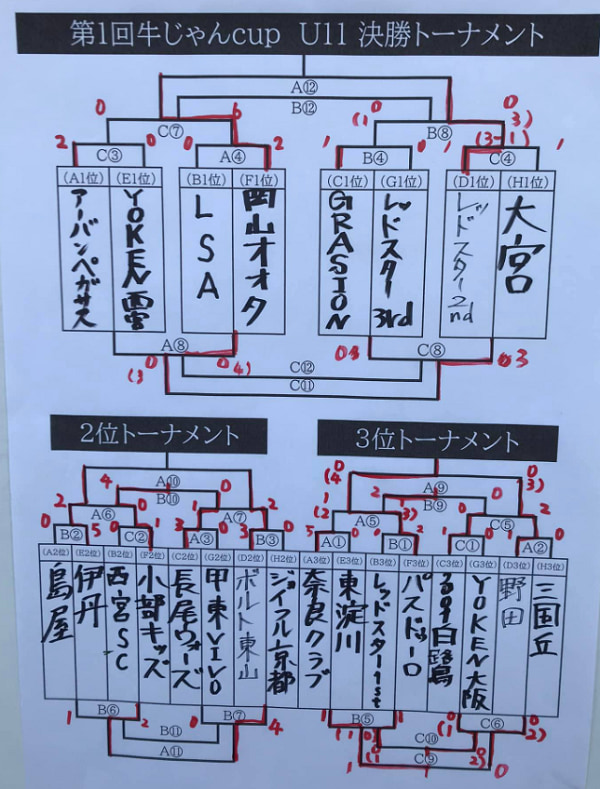 第1回牛じゃんcup U11 決勝トーナメント
A⑫
B⑫
0 6 0 0
(1 3)
C⑦ B⑧
2 0 0 2 1 0 1 (3-1) 1
C③ A④ B④ C④
(A1位) (E1位) (B1位) (F1位) (C1位) (G1位) (D1位) (H1位)
アーバンペガサス
YOKEN西宮
LSA
岡山オオタ
GRASION
レッドスター3rd
レッドスター2nd
大宮
A⑧ C⑧
0 0 0 3
(3 4)
C⑫
C⑪
2位トーナメント 3位トーナメント
A⑩ A⑨
B⑩ B⑨
A⑥ A⑦ A⑤ C⑤
B② C② A③ B③ A① B① C① A②
(A2位) (E2位) (B2位) (F2位) (C2位) (G2位) (D2位) (H2位) (A3位) (E3位) (B3位) (F3位) (C3位) (G3位) (D3位) (H3位)
島屋
伊丹
西宮SC
小部キッズ
長尾ウォーズ
甲東VIVO
ボルト東山
ジョイフル京都
奈良クラブ
東淀川
レッドスター1st
パスドゥーロ
白鷺
YOKEN大阪
野田
三国丘
B⑥ B⑦ B⑤ C⑥
1 2 4 1 1 0 0
B⑪ C⑩
A⑪ C⑨